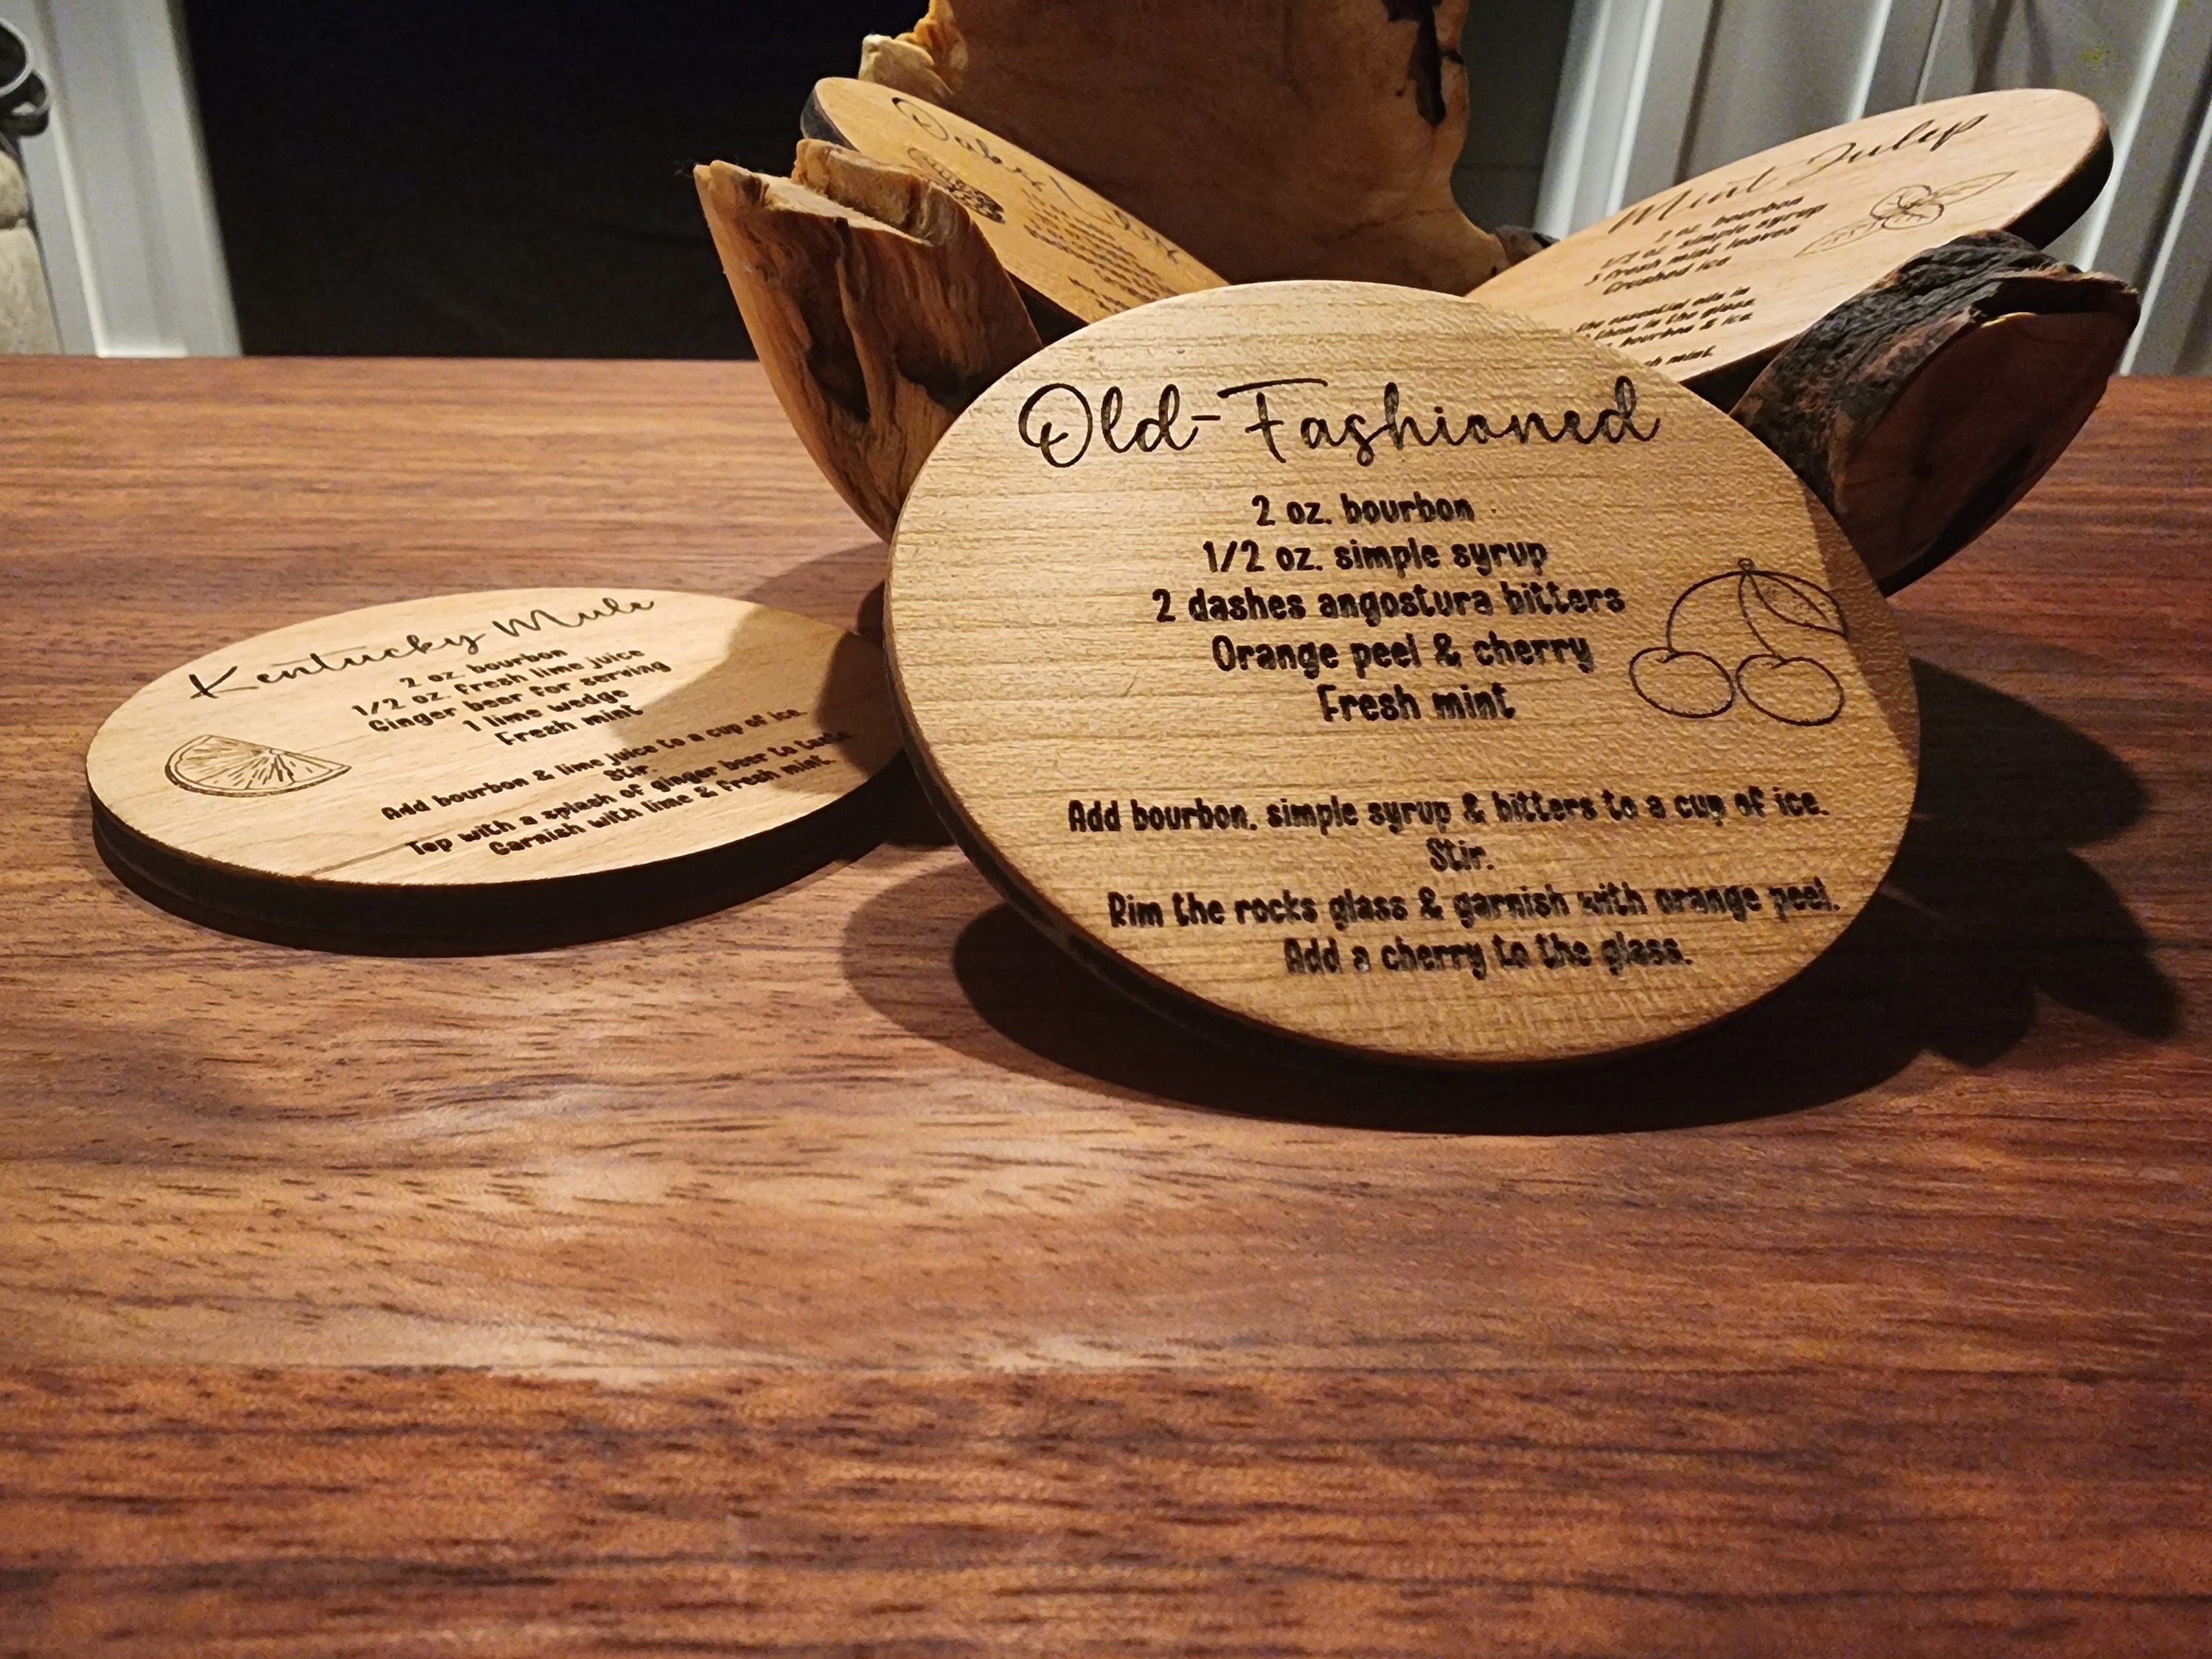 Old-Fashioned
2 oz. bourbon
1/2 oz. simple syrup
2 dashes angostura bitters
Orange peel & cherry
Fresh mint
Add bourbon, simple syrup & bitters to a cup of ice.
Stir.
Rim the rocks glass & garnish with orange peel.
Add a cherry to the glass.
Kentucky Mule
2 oz. bourbon
1/2 oz. Fresh lime juice
Ginger beer for serving
1 lime wedge
Fresh mint
Add bourbon & lime juice to a cup of ice.
Stir.
Top with a splash of ginger beer to taste.
Garnish with lime & fresh mint.
Mint Julep
2 oz. bourbon
1/2 oz. simple syrup
5 fresh mint leaves
Crushed ice
the essential oils in
them in the glass.
bourbon & ice.
mint.